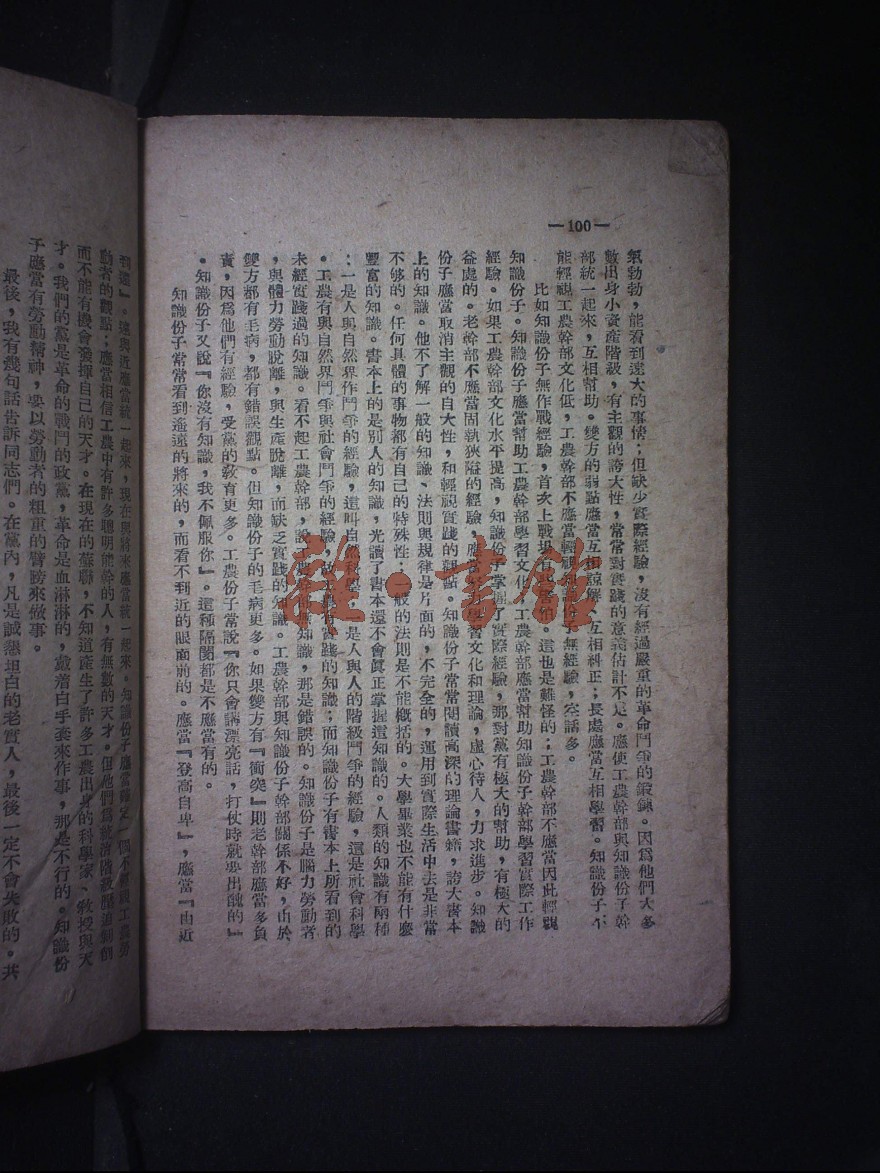 —100—
氣勃勃，能看到遠大的事情；但缺少實際經驗，沒有經過嚴重的革命鬥爭的鍛鍊。因爲他們大多
數出身小資產階級，有主觀的誇大性，常常對實踐的意義估計不足。應使工農幹部與知識份子幹
部統一起來，互相幫助。雙方的弱點應當互相諒解、互相糾正；長處應當互相學習。知識份子不
能輕視工農幹部文化低，工農幹部不應當輕視知識份子無經驗，空話多。
比如知識份子無作戰經驗，首次上戰場，這也是難怪的；工農幹部不應當因此輕視
知識份子。知識份子應當幫助工農幹部學習文化，工農幹部應當幫助知識份子幹部學習實際工作
經驗。如果工農幹部文化水平提高，知識份子掌握了實際經驗，那對黨有極大的幫助，有極大的
益處的。老幹部不應當固執狹隘的經驗，應當學習文化和理論，虛心待人，力求進步。知識
份子應當取消主觀的自大性，和輕視實踐的觀點。知識份子常常閱讀高深的理論書籍，誇大書本
上的知識。他不了解一般的知識、法則與規律是片面的，不完全的，運用到實際生活中去是非常
不够的。任何具體的事物都有自己的特殊性；一般的法則是不能概括的。大學畢業也不能有什麼
豐富的知識。書本上的是別人的知識，光讀了書本還不會眞正掌握這知識的。人類的知識有兩種
：一是人與自然界作鬥爭的經驗，這叫自然科學；是人與人的階級鬥爭的經驗，這是社會科學
。工農有與自然界鬥爭與社會鬥爭的經驗，故工農有實踐的知識；而知識份子有書本上所看到的
未經實踐過的知識。看不起工農幹部，說工農無知識，那是錯誤的。知識份子是腦力勞動者
，與體力勞動脫離，與生產脫離，而缺乏實踐的知識。工農幹部與知識份子幹部關係不好，由於
雙方都有毛病，都有錯誤觀點。但知識份子的毛病更多。如果雙方有『衝突』則老幹部應當多負
責，因爲他們有經驗，受黨的敎育更多。工農份子常說『你只會講漂亮話，打仗時就要出醜的』
。知識份子又說『你沒有知識，我不佩服你』。這種隔閡都是不應當有的。
知識份子常常看到遙遠的將來的，而看不到近的眼面前的。應當『登高自卑』，應當『由近
到遠』。遠與近應當統一起來，現在與將來應當統一起來。知識份子應當確定一個不輕視工農勞
動者的觀點；應當相信工農中有許多聰明能幹的人，有無數的天才。但他們爲統治階級壓迫剝削
而不能有機會發揮自己的天才。在現在的蘇聯，不知道產生了許多工農出身的科學家、敎授與天
才。我們的黨是革命的戰鬥的政黨，革命是血淋淋的，戴着白手套來作事，那是不行的。知識份
子應當有勞動精神，要以勞動者的粗重的臂膀來做事。
最後，我有幾句話告訴同志們。在黨內，凡是誠懇坦白的老實人，最後一定不會失敗的。共
雜·書館